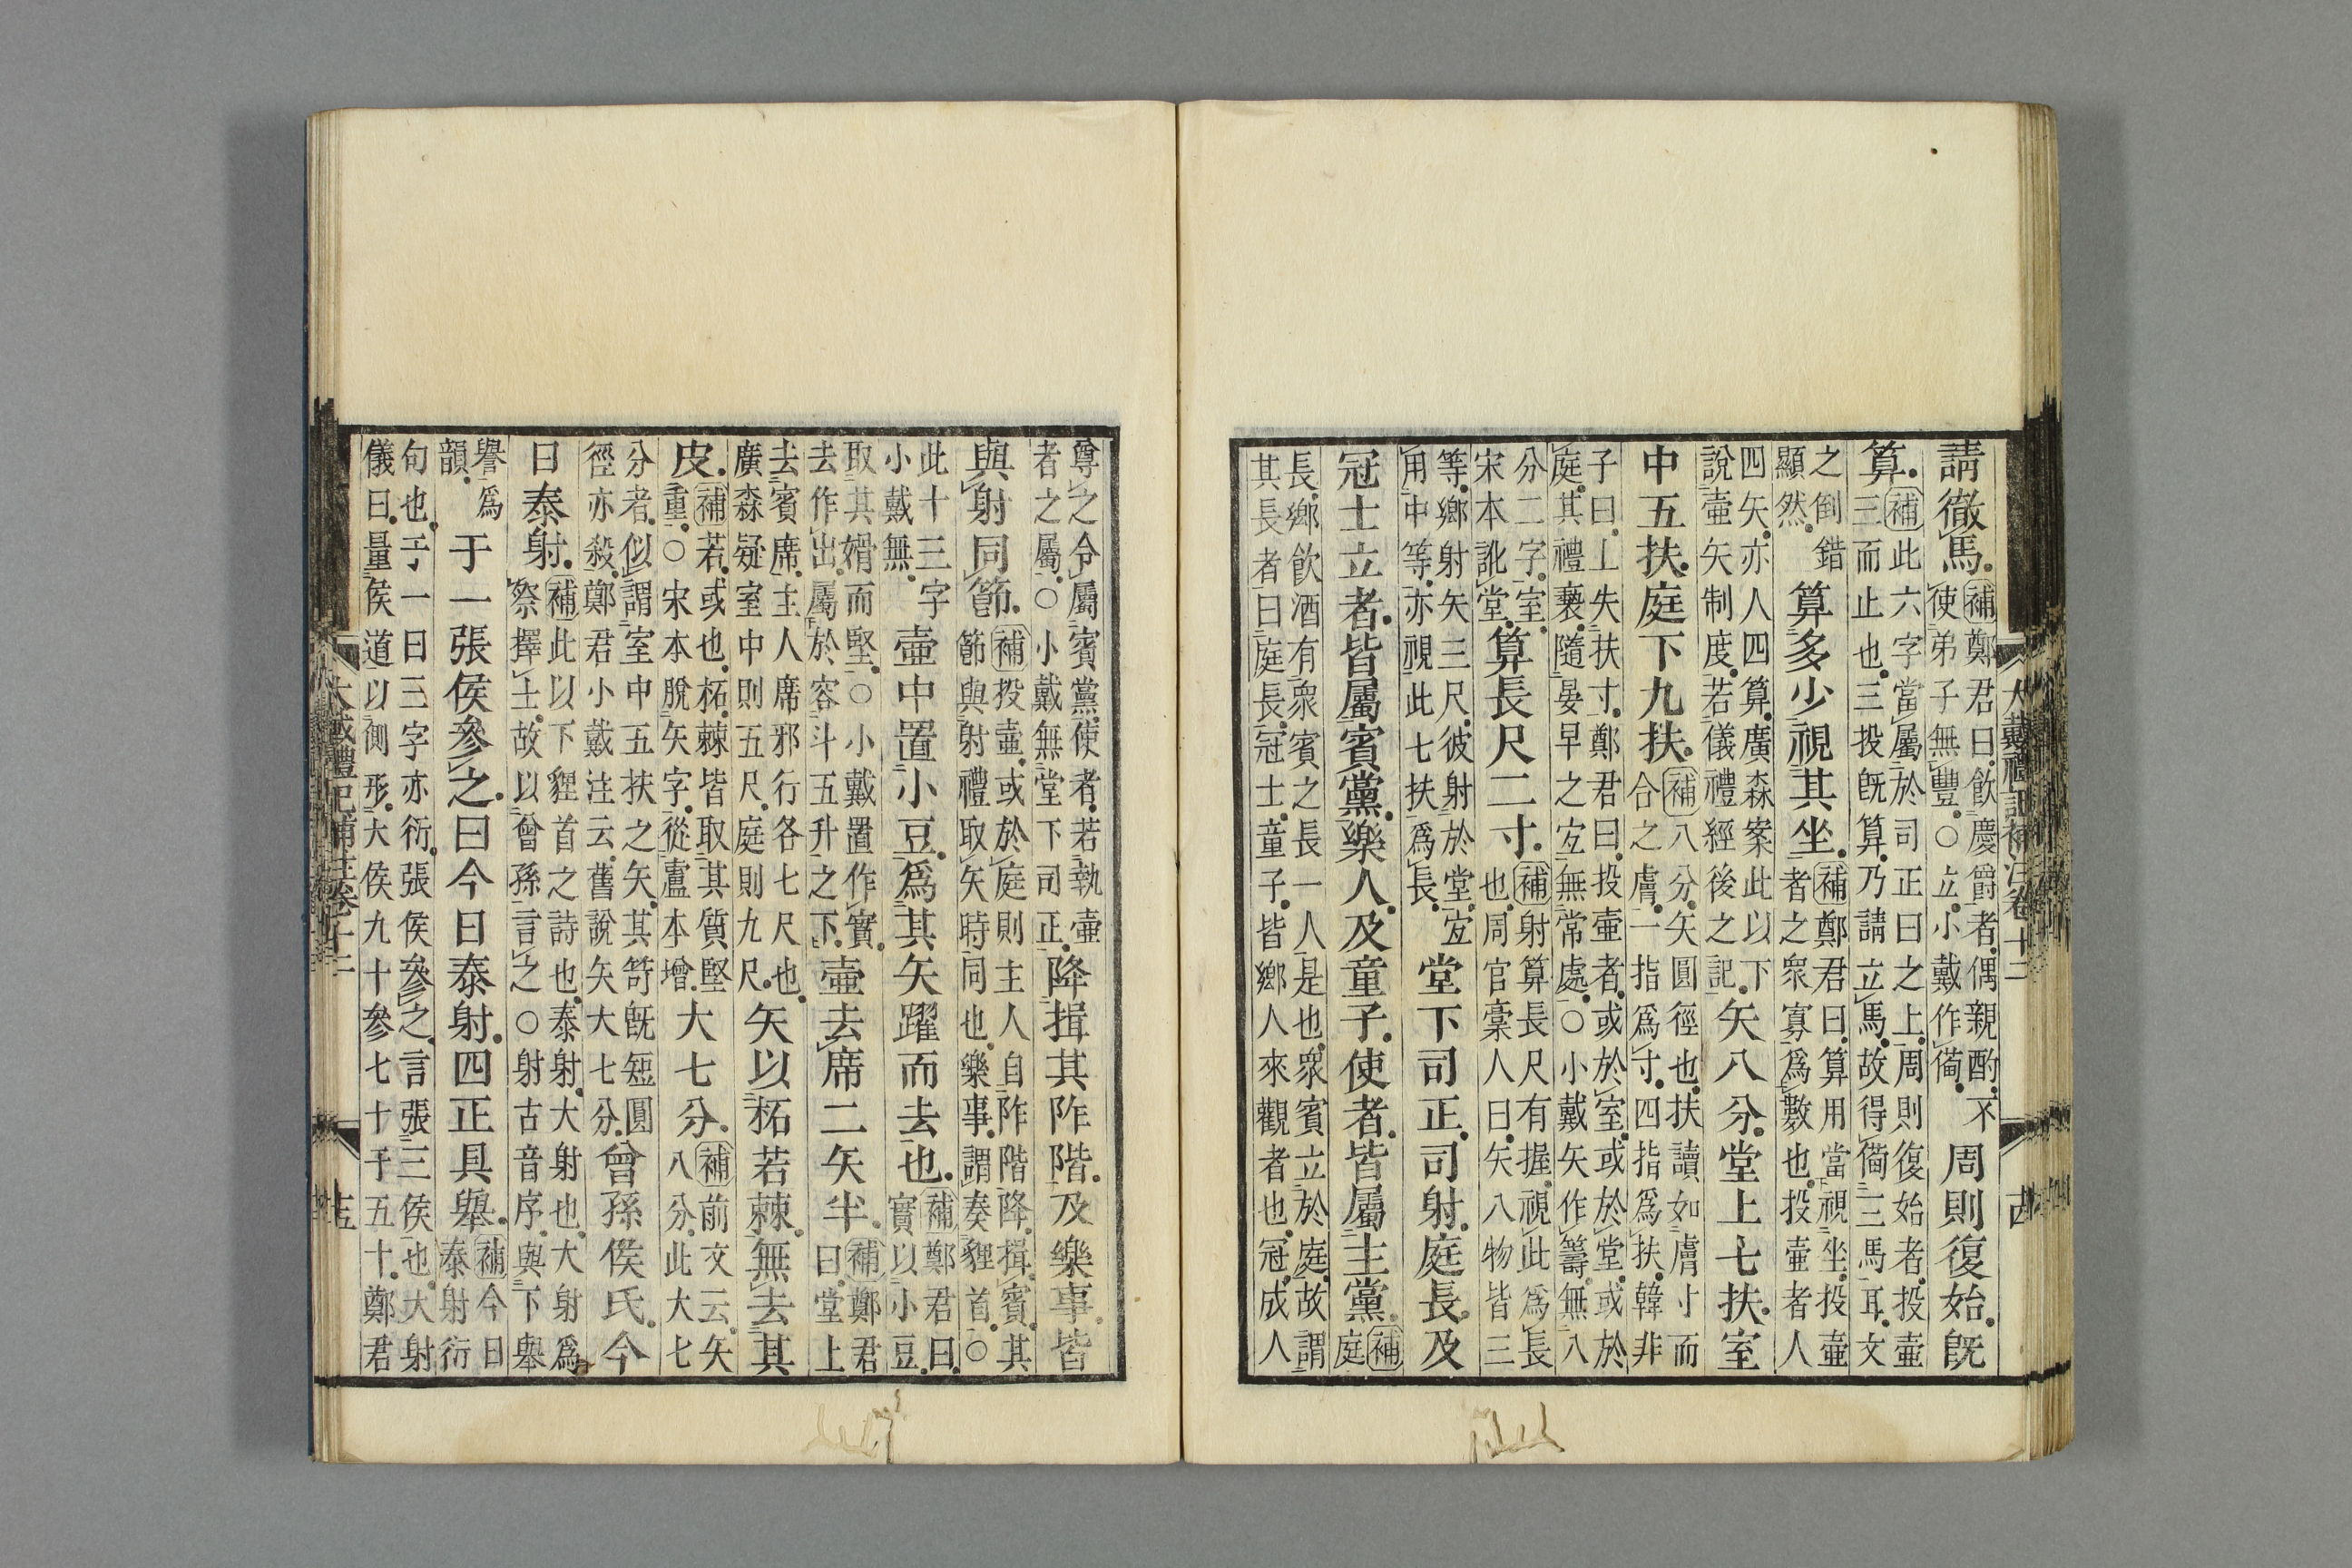 大戴禮記補注卷十二 十四
請徹馬補鄭君曰飲慶爵者偶親酌不
使弟子無豐○立小戴作備
周則復始既
算補此六字當屬於司正曰之上周則復始者投壷
三而止也三投既算乃請立馬故得備三馬耳文
之倒錯
顯然
算多少視其坐補鄭君曰算用當視坐投壷
者之衆寡爲數也投壷者人
四矢亦人四算廣森案此以下
說壷矢制度若儀禮經後之記
矢八分堂上七扶室
中五扶庭下九扶補八分矢圓徑也扶讀如膚寸而
合之膚一指爲寸四指爲扶韓非
子曰上失扶寸鄭君曰投壷者或於室或於堂或於
庭其禮褻隨晏早之宜無常處○小戴矢作籌無八
分二字室
宋本訛堂
算長尺二寸補射算長尺有握視此爲長
也周官槀人曰矢八物皆三
等鄉射矢三尺彼射於堂宜
用中等亦視此七扶爲長
堂下司正司射庭長及
冠士立者皆屬賓黨樂人及童子使者皆屬主黨補
庭
長鄉飲酒有衆賓之長一人是也衆賓立於庭故謂
其長者曰庭長冠士童子皆鄉人來觀者也冠成人
尊之令屬賓黨使者若執壷
者之屬○小戴無堂下司正
降揖其阼階及樂事皆
與射同節補投壷或於庭則主人自阼階降揖賓其
節與射禮取矢時同也樂事謂奏貍首○
此十三字
小戴無
壷中置小豆爲其矢躍而去也補鄭君曰
實以小豆
取其滑而堅○小戴置作實
去作出屬於容斗五升之下
壷去席二矢半補鄭君
曰堂上
去賓席主人席邪行各七尺也
廣森疑室中則五尺庭則九尺
矢以柘若棘無去其
皮補若或也柘棘皆取其質堅
重○宋本脫矢字從盧本增
大七分補前文云矢
八分此大七
分者似謂室中五扶之矢其笴既短圓
徑亦殺鄭君小戴注云舊說矢大七分
曾孫侯氏今
日泰射補此以下貍首之詩也泰射大射也大射爲
祭擇士故以曾孫言之○射古音序與下舉
譽爲
韻
于一張侯參之曰今日泰射四正具舉補今日
泰射衍
句也于一曰三字亦衍張侯參之言張三侯也大射
儀曰量侯道以側形大侯九十參七十干五十鄭君
大戴禮記補注卷十二 十五